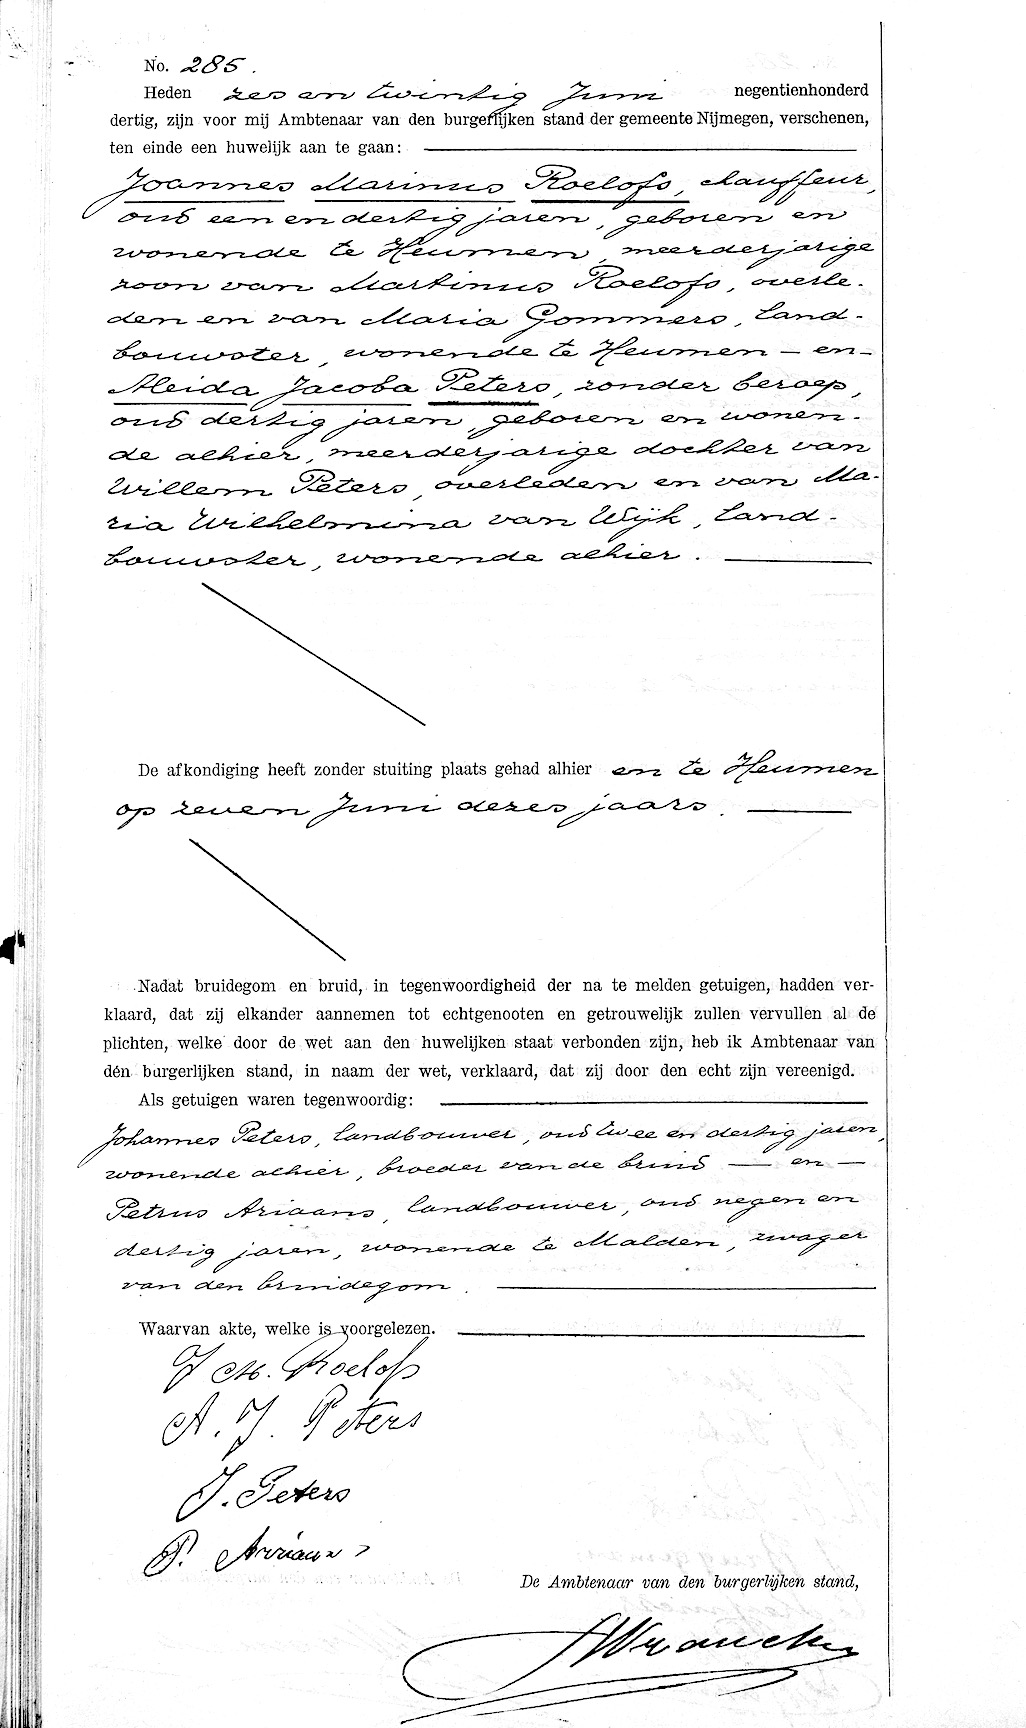 No. 285.
Heden zes en twintig Juni negentienhonderd
dertig, zijn voor mij Ambtenaar van den burgerlijken stand der gemeente Nijmegen, verschenen,
ten einde een huwelijk aan te gaan:
Joannes Marinus Roelofs, chauffeur,
oud een en dertig jaren, geboren en
wonende te Heumen, meerderjarige
zoon van Martinus Roelofs, overle-
den en van Maria Gommers, land-
bouwster, wonende te Heumen – en –
Aleida Jacoba Peters, zonder beroep,
oud dertig jaren, geboren en wonen-
de alhier, meerderjarige dochter van
Willem Peters, overleden en van Ma-
ria Wilhelmina van Wijk, land-
bouwster, wonende alhier.
De afkondiging heeft zonder stuiting plaats gehad alhier en te Heumen
op zeven Juni dezes jaars.
Nadat bruidegom en bruid, in tegenwoordigheid der na te melden getuigen, hadden ver-
klaard, dat zij elkander aannemen tot echtgenooten en getrouwelijk zullen vervullen al de
plichten, welke door de wet aan den huwelijken staat verbonden zijn, heb ik Ambtenaar van
den burgerlijken stand, in naam der wet, verklaard, dat zij door den echt zijn vereenigd.
Als getuigen waren tegenwoordig:
Johannes Peters, landbouwer, oud twee en dertig jaren,
wonende alhier, broeder van de bruid — en —
Petrus Ariaans, landbouwer, oud negen en
dertig jaren, wonende te Malden, zwager
van den bruidegom.
Waarvan akte, welke is voorgelezen.
J M. Roelofs
A. J. Peters
J. Peters
P. Arriaans
De Ambtenaar van den burgerlijken stand,